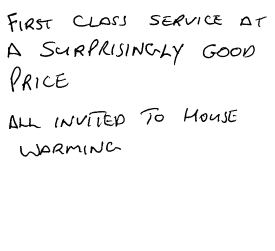 FIRST CLASS SERVICE AT
A SURPRISINGLY GOOD
PRICE
ALL INVITED TO HOUSE
WARMING